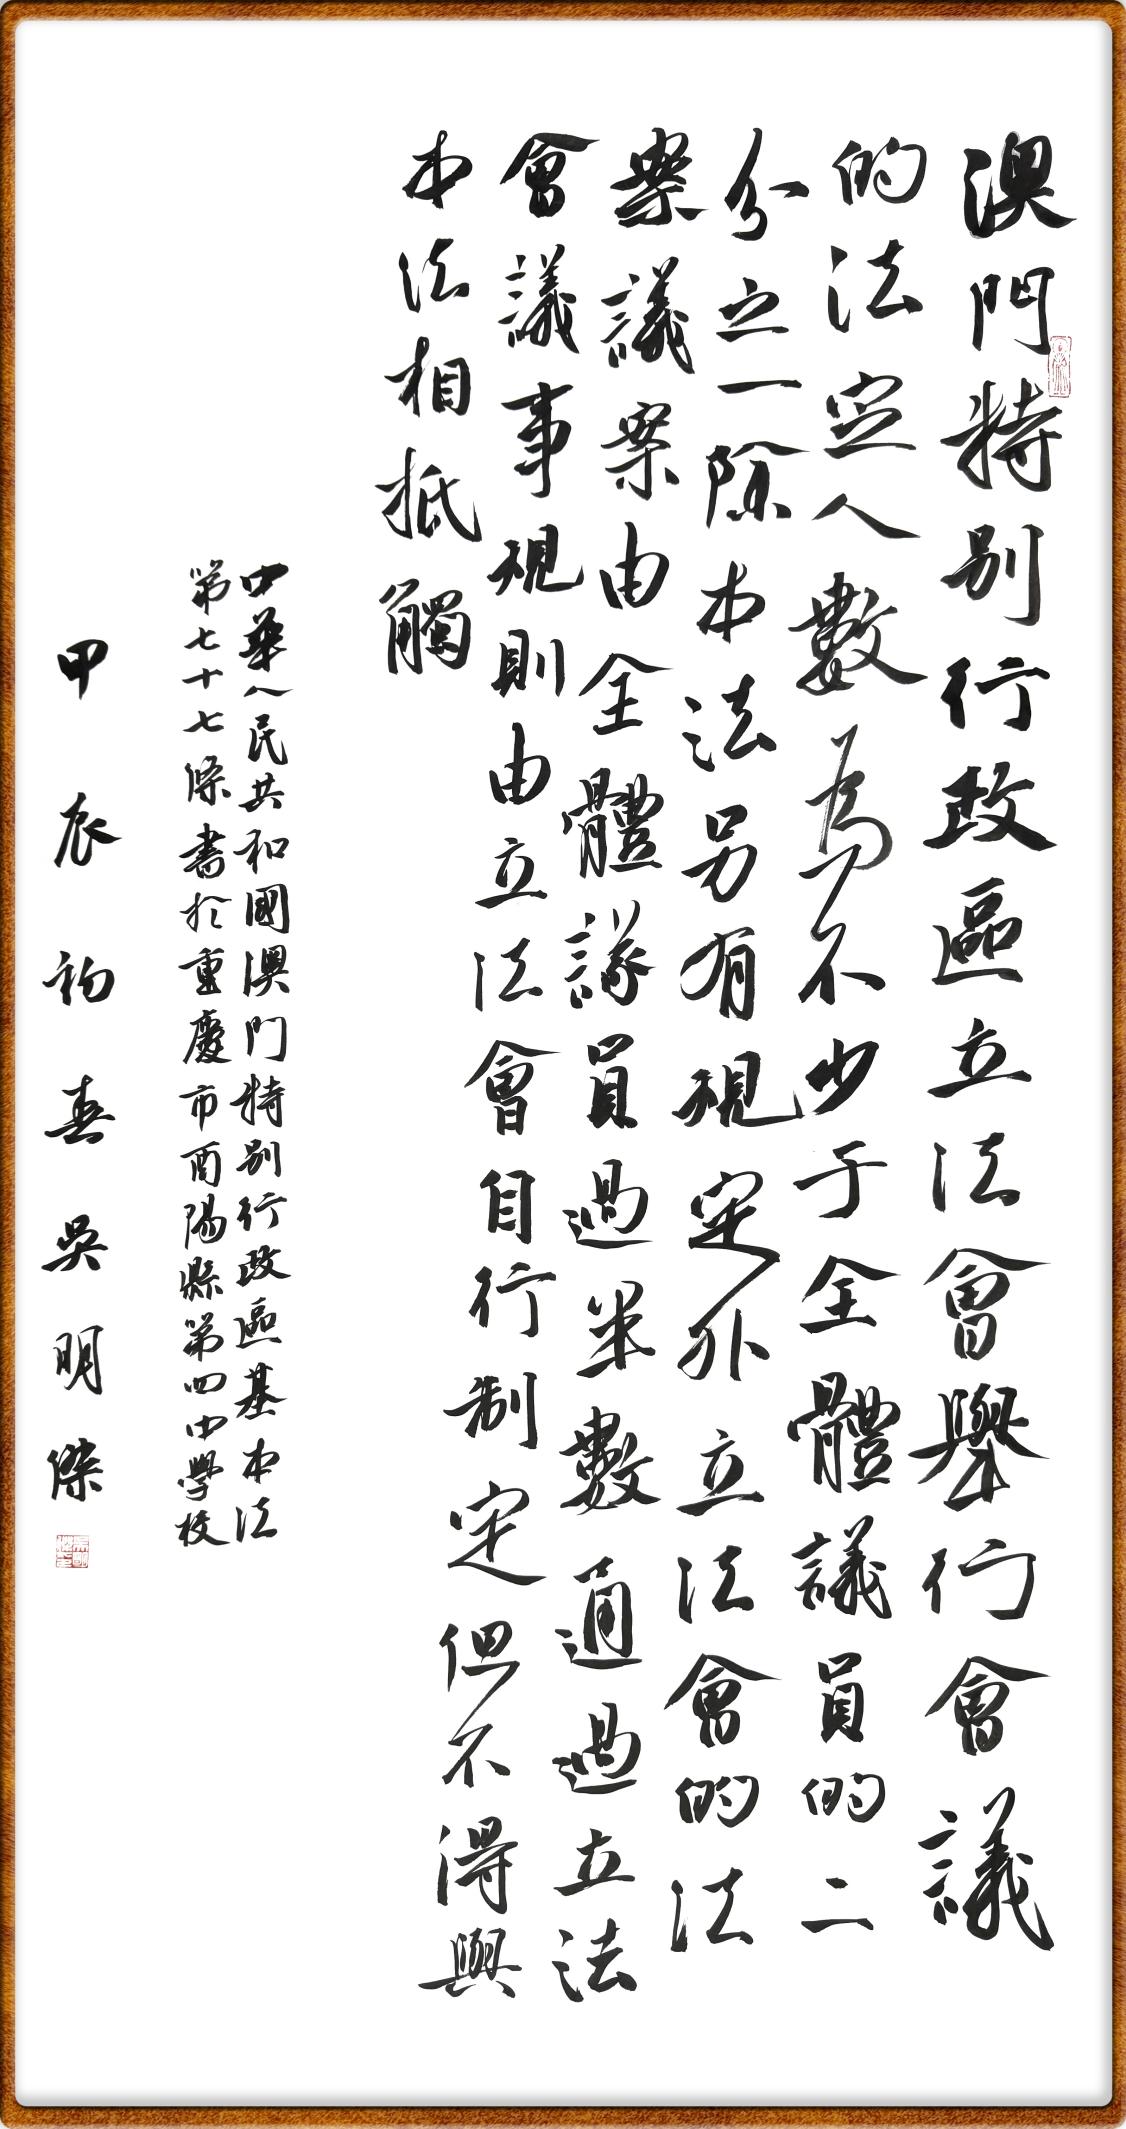 澳門特別行政區立法會舉行會議
的法定人數為不少于全體議員的二
分之一除本法另有規定外立法會的法
案議案由全體議員過半數通過立法
會議事規則由立法會自行制定但不得與
本法相抵觸
中華人民共和國澳門特別行政區基本法
第七十七條書於重慶市酉陽縣第四中學校
甲辰初春吳明傑